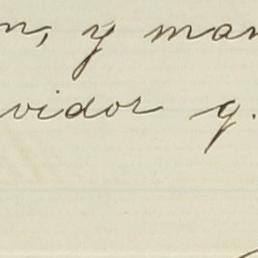 n, y man
vidor q.